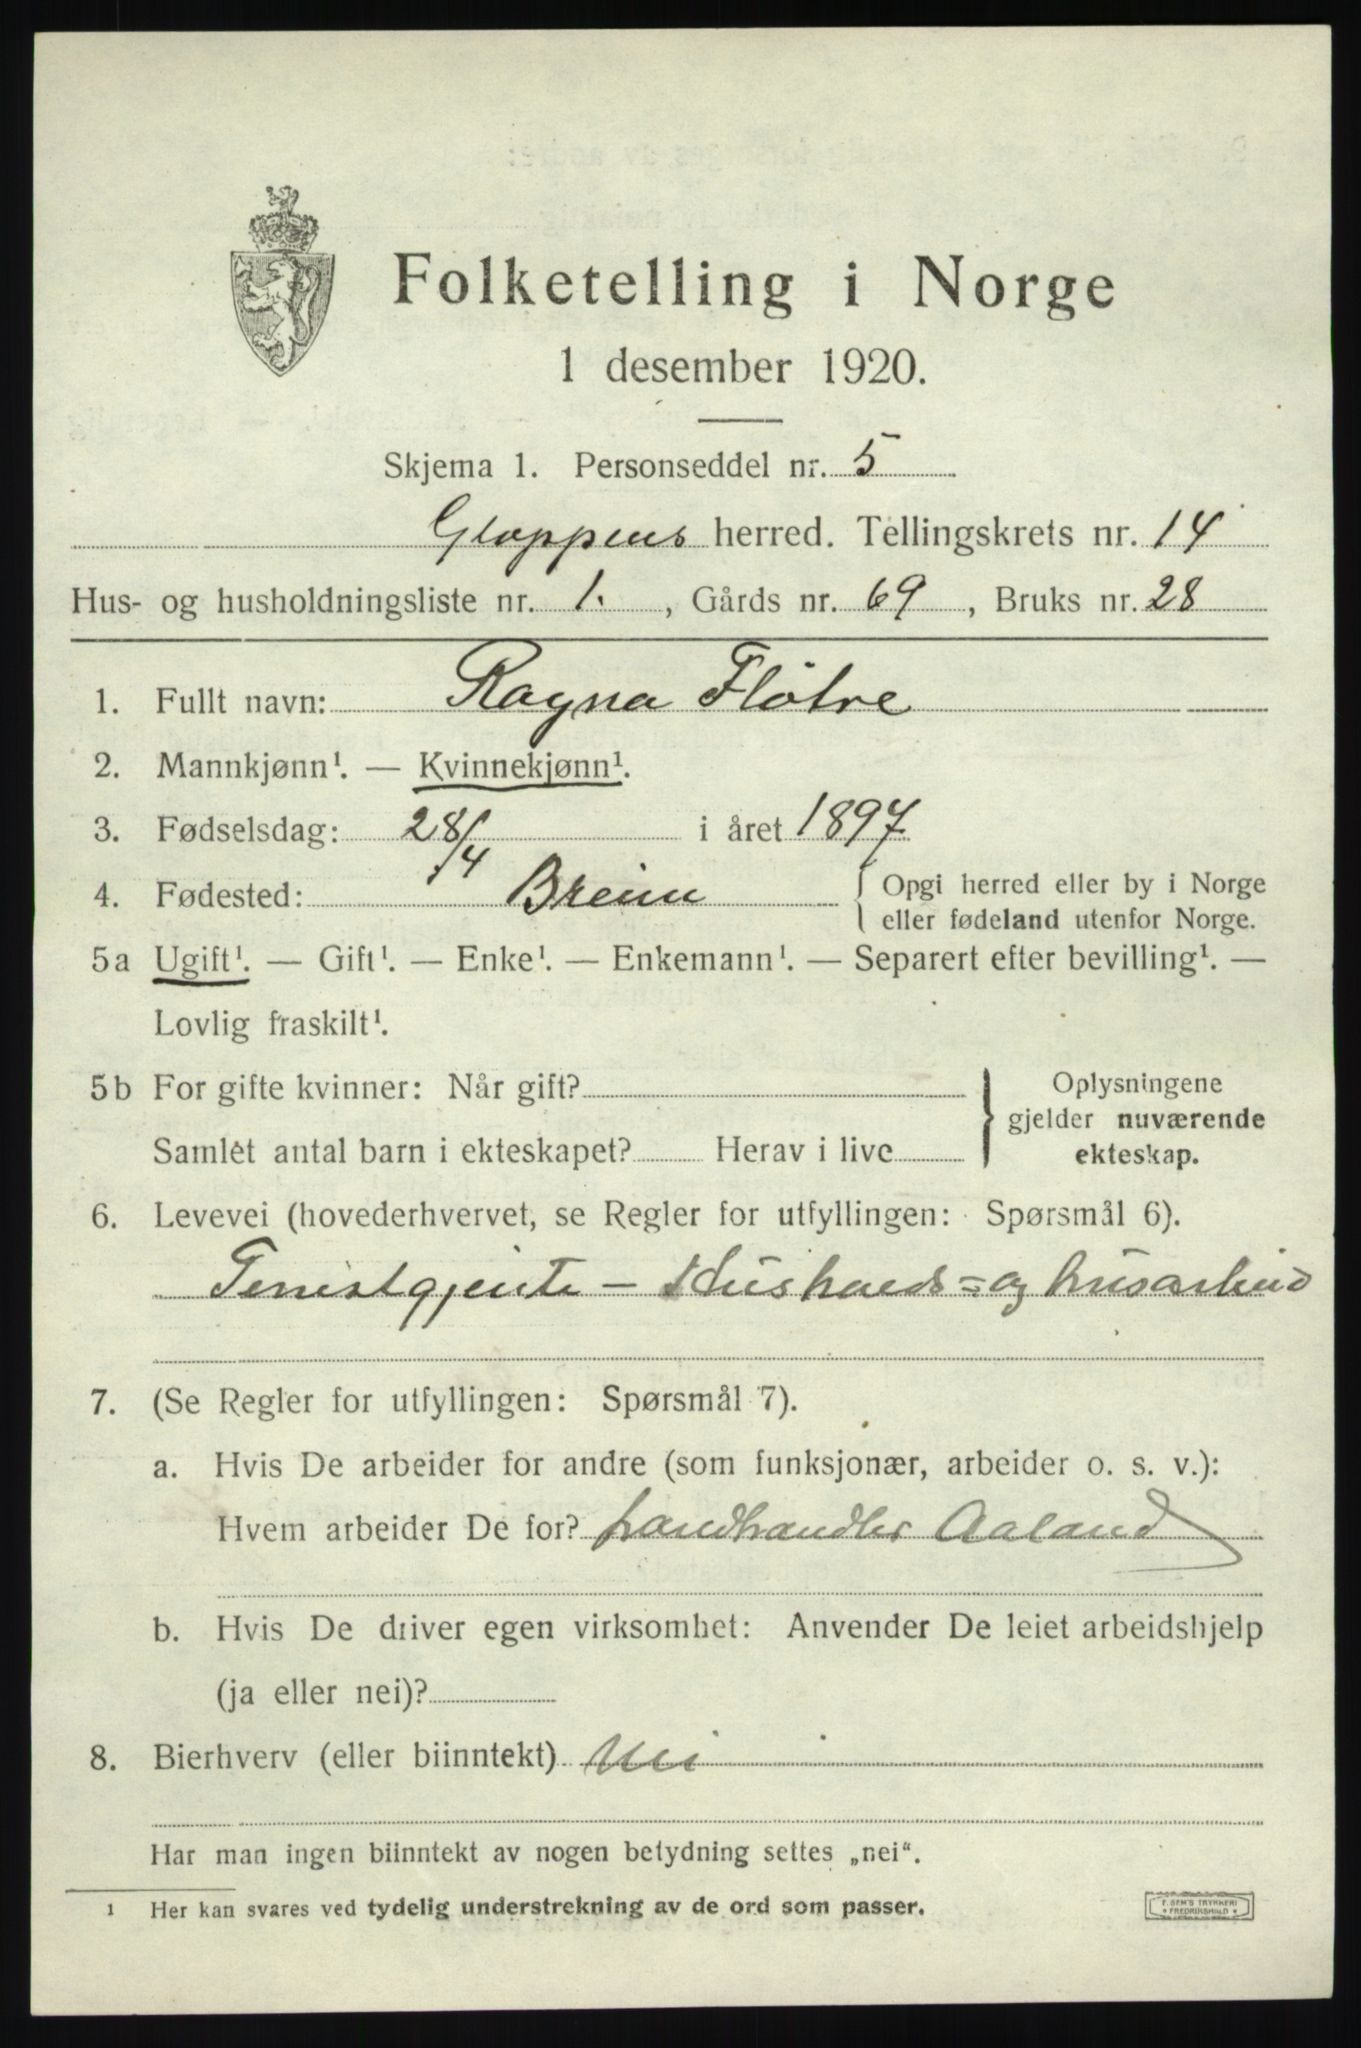 Folketelling i Norge
1 desember 1920.
Skjema 1. Personseddel nr. 5
Gloppens herred. Tellingskrets nr. 14
Hus- og husholdningsliste nr. 1. , Gårds nr. 69 , Bruks nr. 28
1. Fullt navn: Ragna Fløtre
2. Mannkjønn¹. — Kvinnekjønn¹.
3. Fødselsdag: 28/4 i året 1897
4. Fødested: Breim { Opgi herred eller by i Norge
eller fødeland utenfor Norge.
5a Ugift¹. — Gift¹. — Enke¹. — Enkemann¹. — Separert efter bevilling¹. —
Lovlig fraskilt¹.
5b For gifte kvinner: Når gift?
Samlet antal barn i ekteskapet? Herav i live
Oplysningene
gjelder nuværende
ekteskap.
6. Levevei (hovederhvervet, se Regler for utfyllingen: Spørsmål 6).
Tenestgjente - Husholds- og husarbeid
7. (Se Regler for utfyllingen: Spørsmål 7).
a. Hvis De arbeider for andre (som funksjonær, arbeider o. s. v.):
Hvem arbeider De for? Landhandler Aaland
b. Hvis De driver egen virksomhet: Anvender De leiet arbeidshjelp
(ja eller nei)?
8. Bierhverv (eller biinntekt) Nei
Har man ingen biinntekt av nogen betydning settes „nei“.
¹ Her kan svares ved tydelig understrekning av de ord som passer.
F. SEM'S TRYKKERI
• FREDRIKSHALD •